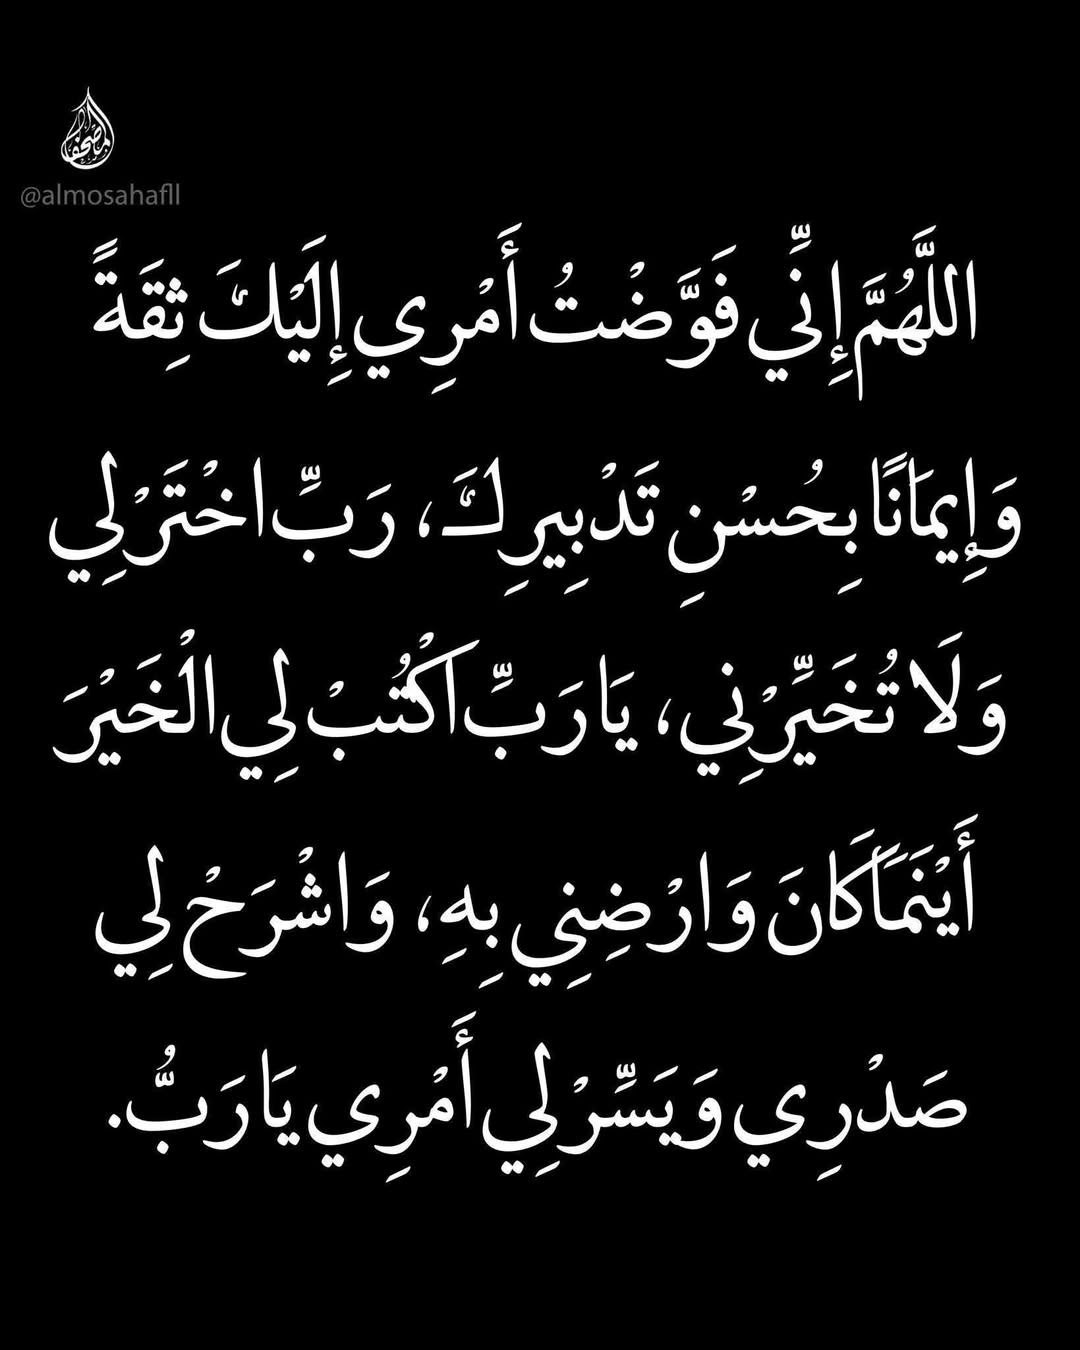 المصحف
@almosahafll
اللَّهُمَّ إِنِّي فَوَّضْتُ أَمْرِي إِلَيْكَ ثِقَةً
وَإِيمَانًا بِحُسْنِ تَدْبِيرِكَ، رَبِّ اخْتَرْ لِي
وَلَا تُخَيِّرْنِي، يَا رَبِّ اكْتُبْ لِي الْخَيْرَ
أَيْنَمَا كَانَ وَارْضِنِي بِهِ، وَاشْرَحْ لِي
صَدْرِي وَيَسِّرْ لِي أَمْرِي يَا رَبُّ.